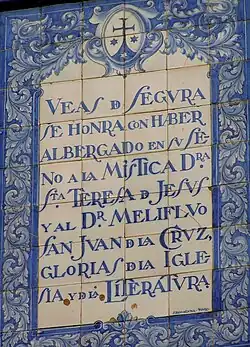 VEAS D SEGURA
SE HONRA CON HABER
ALBERGADO EN SU SE-
NO A LA MISTICA DRA.
STA TERESA D JESUS
Y AL DR. MELIFLUO
SAN JUAN D LA CRUZ,
GLORIAS D LA IGLE-
SIA Y D LA LITERATURA